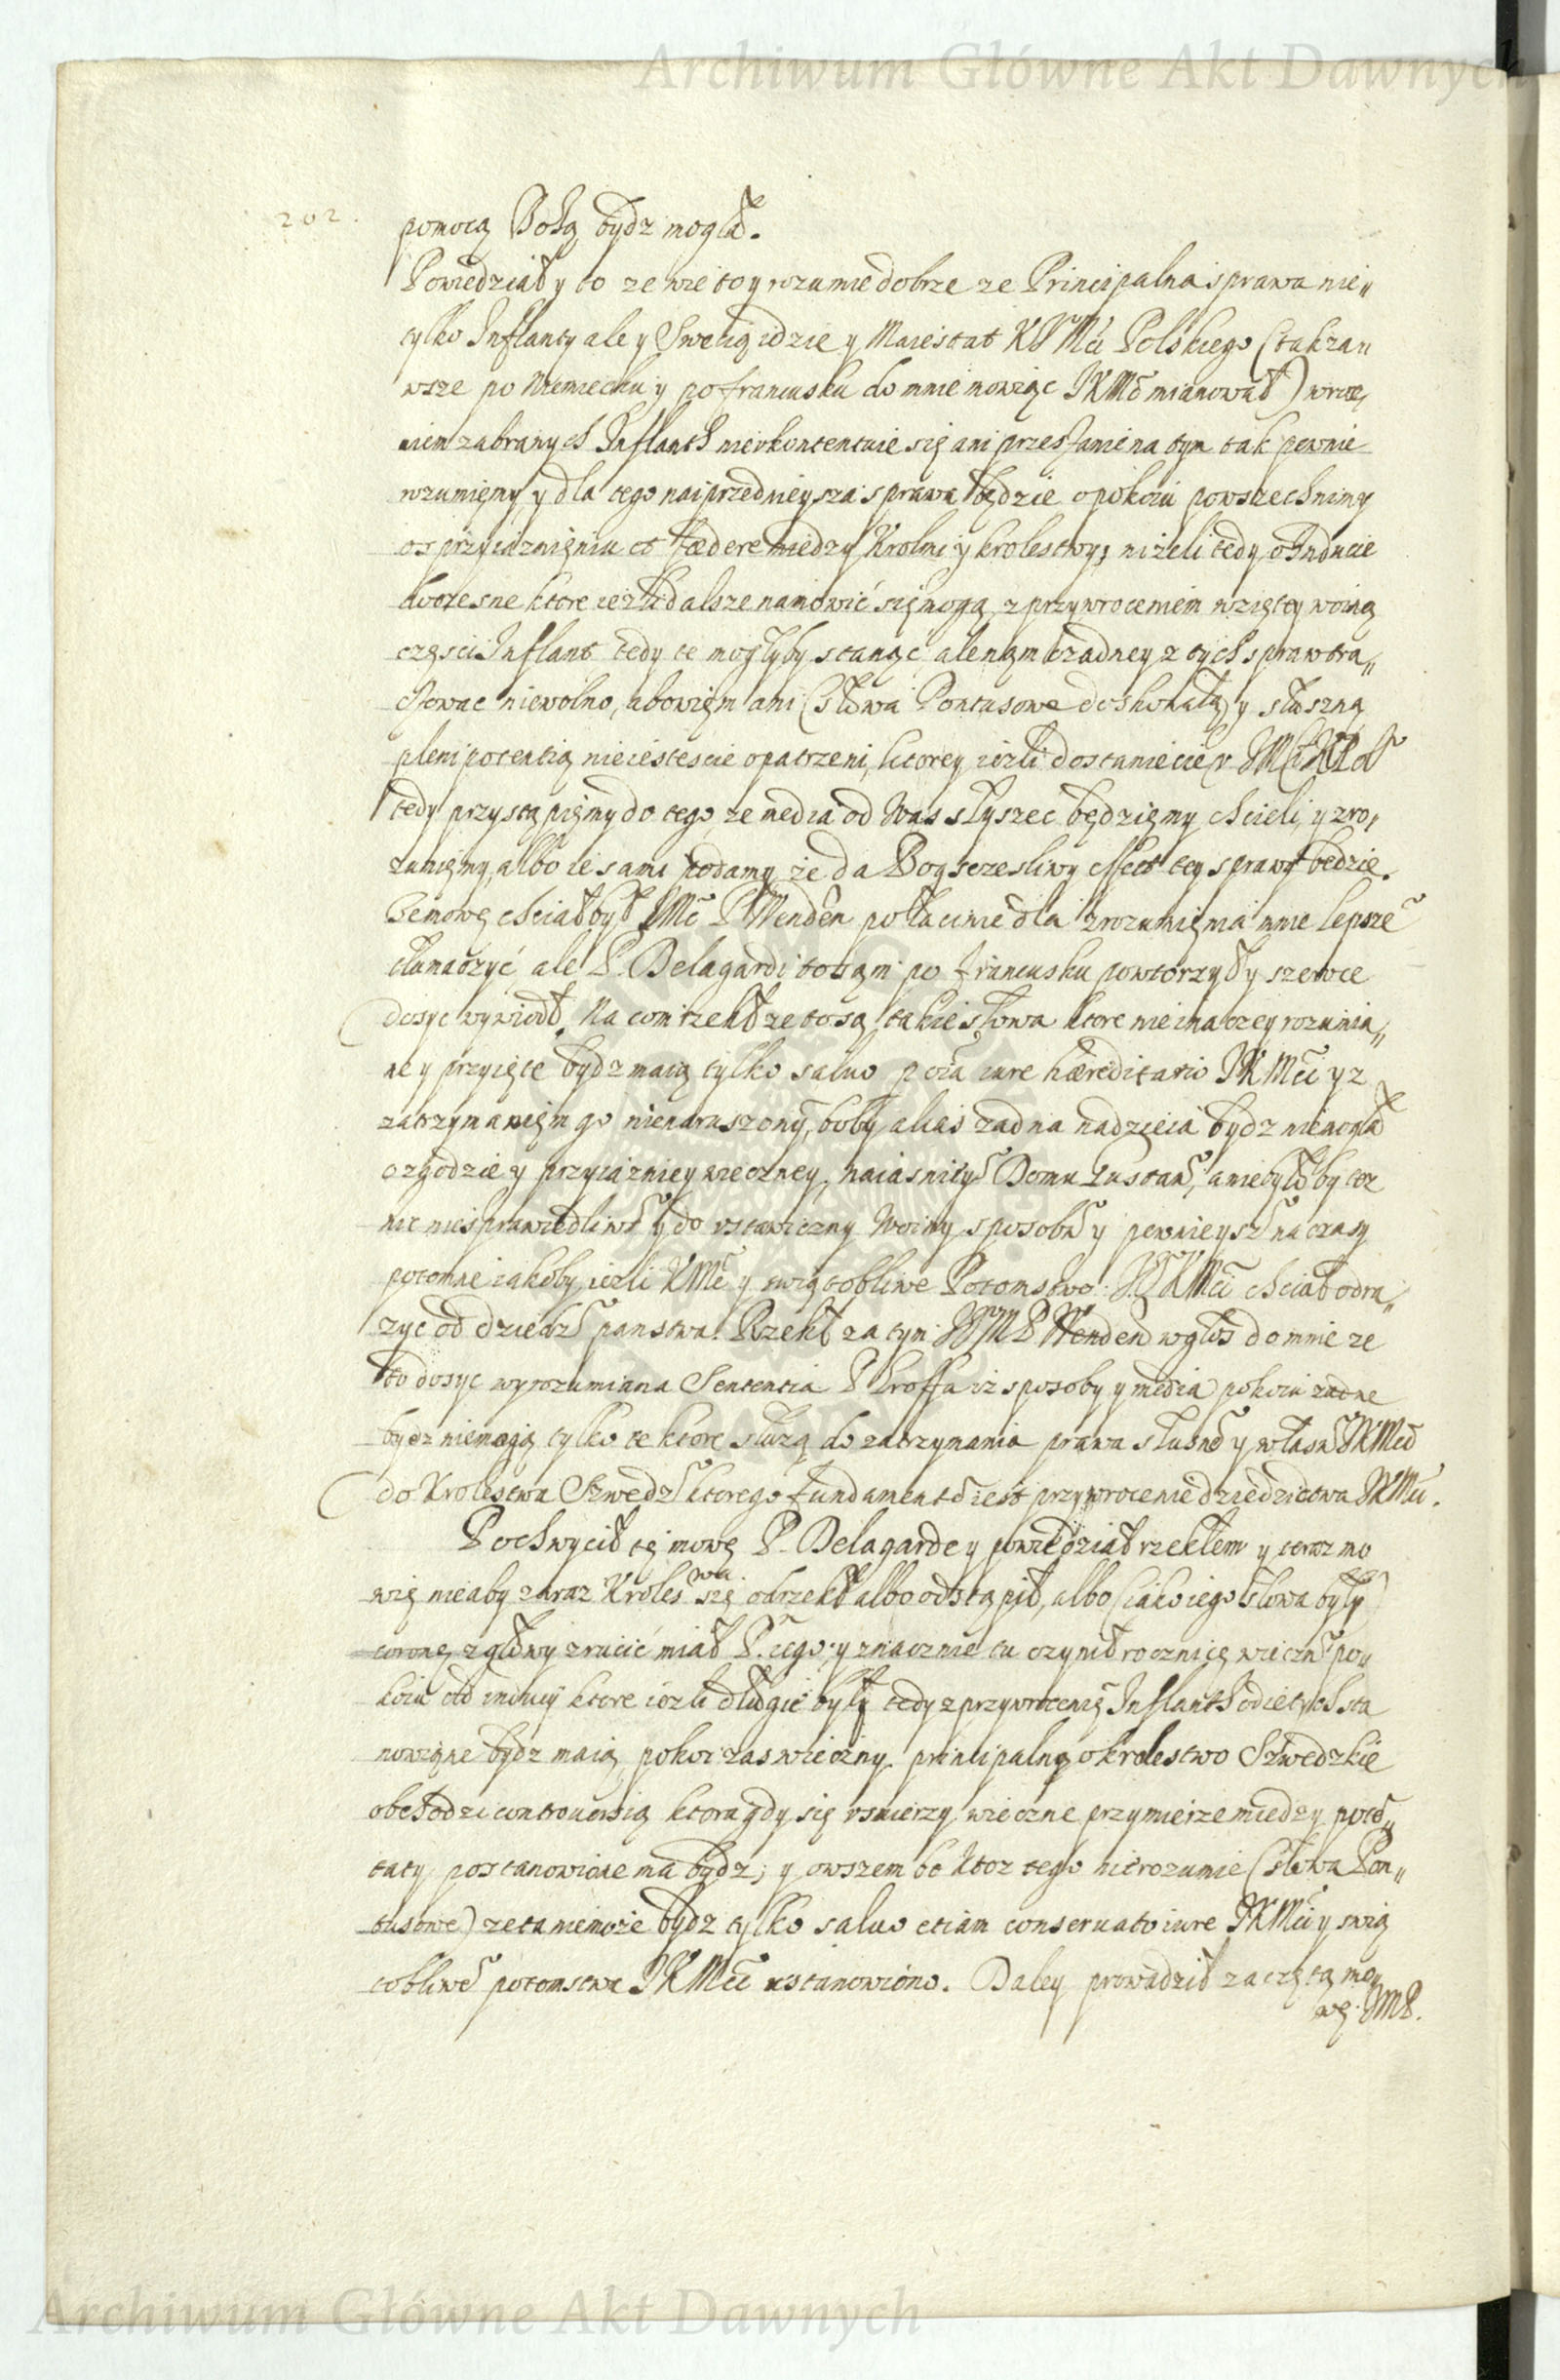 Archiwum Główne Akt Dawnych
202.
pomocą Bożą bydz mogła.
Powiedział y to ze wie to y rozumie dobrze ze Principalna sprawa nie„
tylko Inflanty ale y Swecią idzie y Maiestat K Mći Polskiego (tak zau
wsze po Niemiecku y po francusku do mnie mowiąc JKMć mianował) wroce„
niem zabranych Inflanth nieukontentuie się ani przestanie na tym tak pewnie
rozumięmy y dla tego naiprzednieysza sprawa będzie o pokoiu powszechnimy
o sprzyiaznięniu et fœdere miedzy Krolmi y krolestwy, nizeli tedy o Inducie
doczesne ktore iezli dalsze namowić się mogą z przywroceniem wziętey woiną
częsci Inflant tedy te mogłyby stanąc ale nąm o zadney z tych spraw tra„
ctowac niewolno, abowięm ani (słowa Pontusowe) doskonałą y słuszną
plenipotentią nieiestescie opatrzeni, ktorey iezli dostaniecie v
tedy przystąpięmy do tego, ze media od Was słyszec będzięmy chcieli, y zro„
zumięmy, albo ie sami podamy, że da Bog sczesliwy effect tey sprawy będzie.
Tę mowę chciał był JMć P Wenden po łacinie dla zrozumięnia mnie lepsze
tłumaczyć ale P. Delagardi totąm po francusku powtorzył y szerzce
dosyc wywiodł. Na com rzekł ze to są takie słowa ktore nieinaczey rozumia„
ne y przyięte bydz maią tylko saluo iure hæreditario JKMći y z
zatrzymanięm go nienaruszony, boby alias zadna nadzieia bydz niemogła
o zgodzie y przyiazniey wieczney, naiasnity Domu Gustaw, a niebyłoby toz
nic niesprawiedliw y do vstawiczny Woiny sposobn y pewnieysz na czasy
potomne iakoby iezli KMć y swiątobliwe Potomstwo JKMći chciał odra„
zyc od dziedz panstwa. Rzekł za tym JMP Wenden w głos do mnie ze
to dosyc wyrozumiana Sententia P Kroffa iz sposoby y media pokoiu zadne
bydz niemogą tylko te ktore służą do zatrzymania prawa słusne y własn JKMći
do Krolestwa Szwedz ktorego fundament iest przywrocenie dziedzictwa JKMći.
Pochwycił tę mowę P. Delagarde y powiedział rzekłem y teraz mo
wię nie aby zaraz Kroles
wa
się odrzekł albo odstąpił, albo (iako iego słowa były)
coronę z głowy zrucić miał P. iego: y znacznie tu czynił rocznicę wieczn po„
koiu od inducy ktore iezli długie były tedy z przywrocenię Inflanth odiętych sta
nowione bydz maią, pokoi zas wieczny principalną o krolestwo Szwedzkie
obchodzi controuersią ktora gdy się vsmierzy wieczne przymierze miedzy pote„
taty postanowione ma bydz; y owszem bo ktoz tego nierozumie (słowa Pon„
tusowe) ze ta niemoże bydz tylko saluo etiam conseruato iure JKMći y swią
tobliwe potomstwa JKMći ustanowiono. Daley prowadził zaczętą mo„
wę. JMP.
Archiwum Główne Akt Dawnych